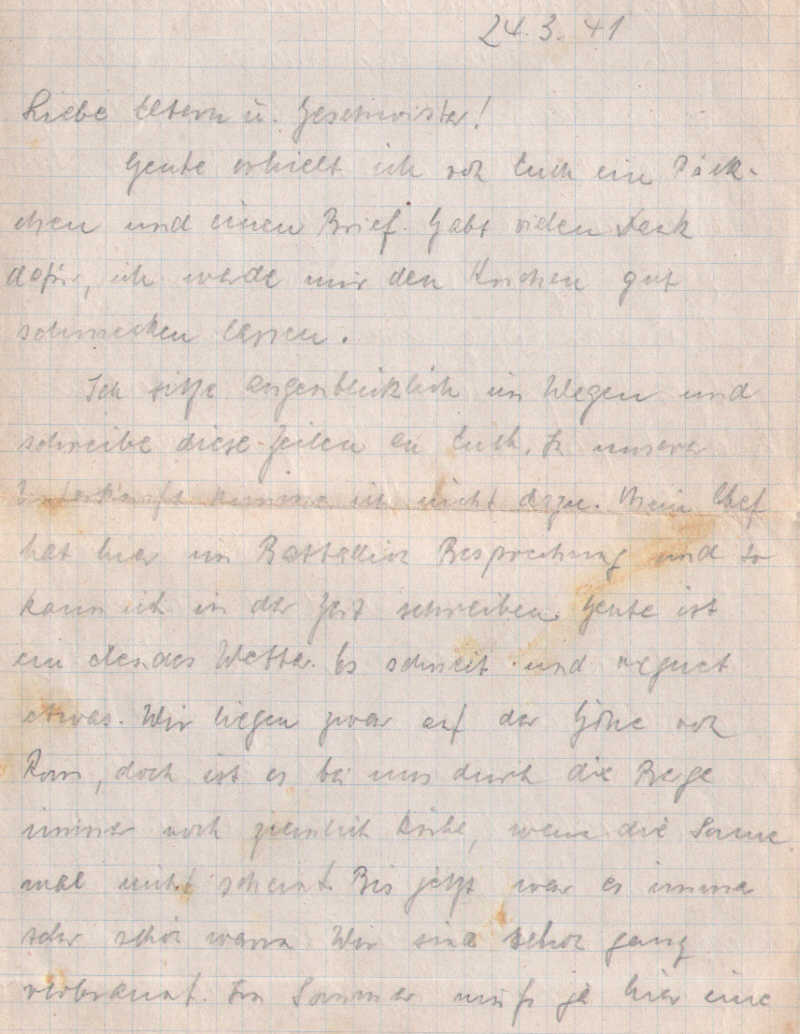 24.3.41
Liebe Eltern u. Geschwister!
Heute erhielt ich von Euch ein Päck-
chen und einen Brief. Habt vielen Dank
dafür, ich werde mir den Kuchen gut
schmecken lassen.
Ich sitze augenblicklich im Wagen und
schreibe diese Zeilen an Euch. In unserer
Unterkunft komme ich nicht dazu. Mein Chef
hat hier im Battalion Besprechung und so
kann ich in der Zeit schreiben. Heute ist
ein elendes Wetter. Es schneit und regnet
etwas. Wir liegen zwar auf der Höhe von
Rom, doch ist es bei uns durch die Berge
immer noch ziemlich kühl, wenn die Sonne
mal nicht scheint. Bis jetzt war es immer
sehr schön warm. Wir sind schon ganz
verbrannt. Im Sommer muß ja hier eine